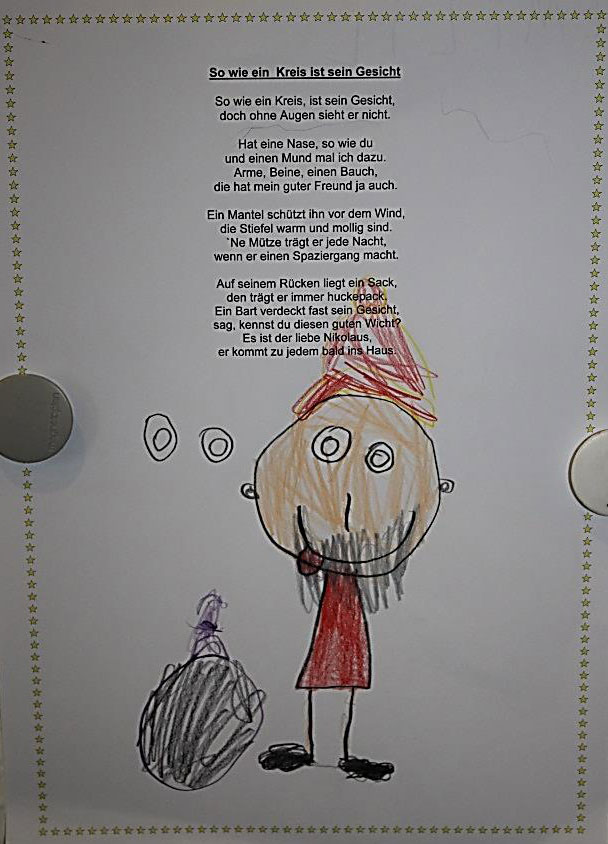 So wie ein Kreis ist sein Gesicht
So wie ein Kreis, ist sein Gesicht,
doch ohne Augen sieht er nicht.
Hat eine Nase, so wie du
und einen Mund mal ich dazu.
Arme, Beine, einen Bauch,
die hat mein guter Freund ja auch.
Ein Mantel schützt ihn vor dem Wind,
die Stiefel warm und mollig sind.
`Ne Mütze trägt er jede Nacht,
wenn er einen Spaziergang macht.
Auf seinem Rücken liegt ein Sack,
den trägt er immer huckepack.
Ein Bart verdeckt fast sein Gesicht,
sag, kennst du diesen guten Wicht?
Es ist der liebe Nikolaus,
er kommt zu jedem bald ins Haus.